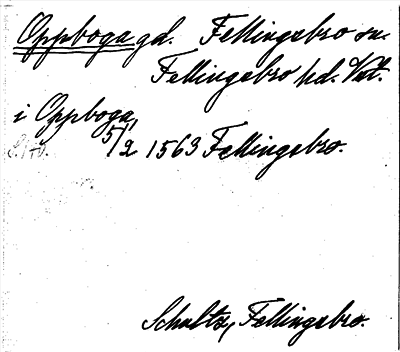 Oppboga gd. Fellingsbro sn.
Fellingsbro hd. Vstm.
i Oppboga,
5/2 1563 Fellingsbro.
Schultz, Fellingsbro.